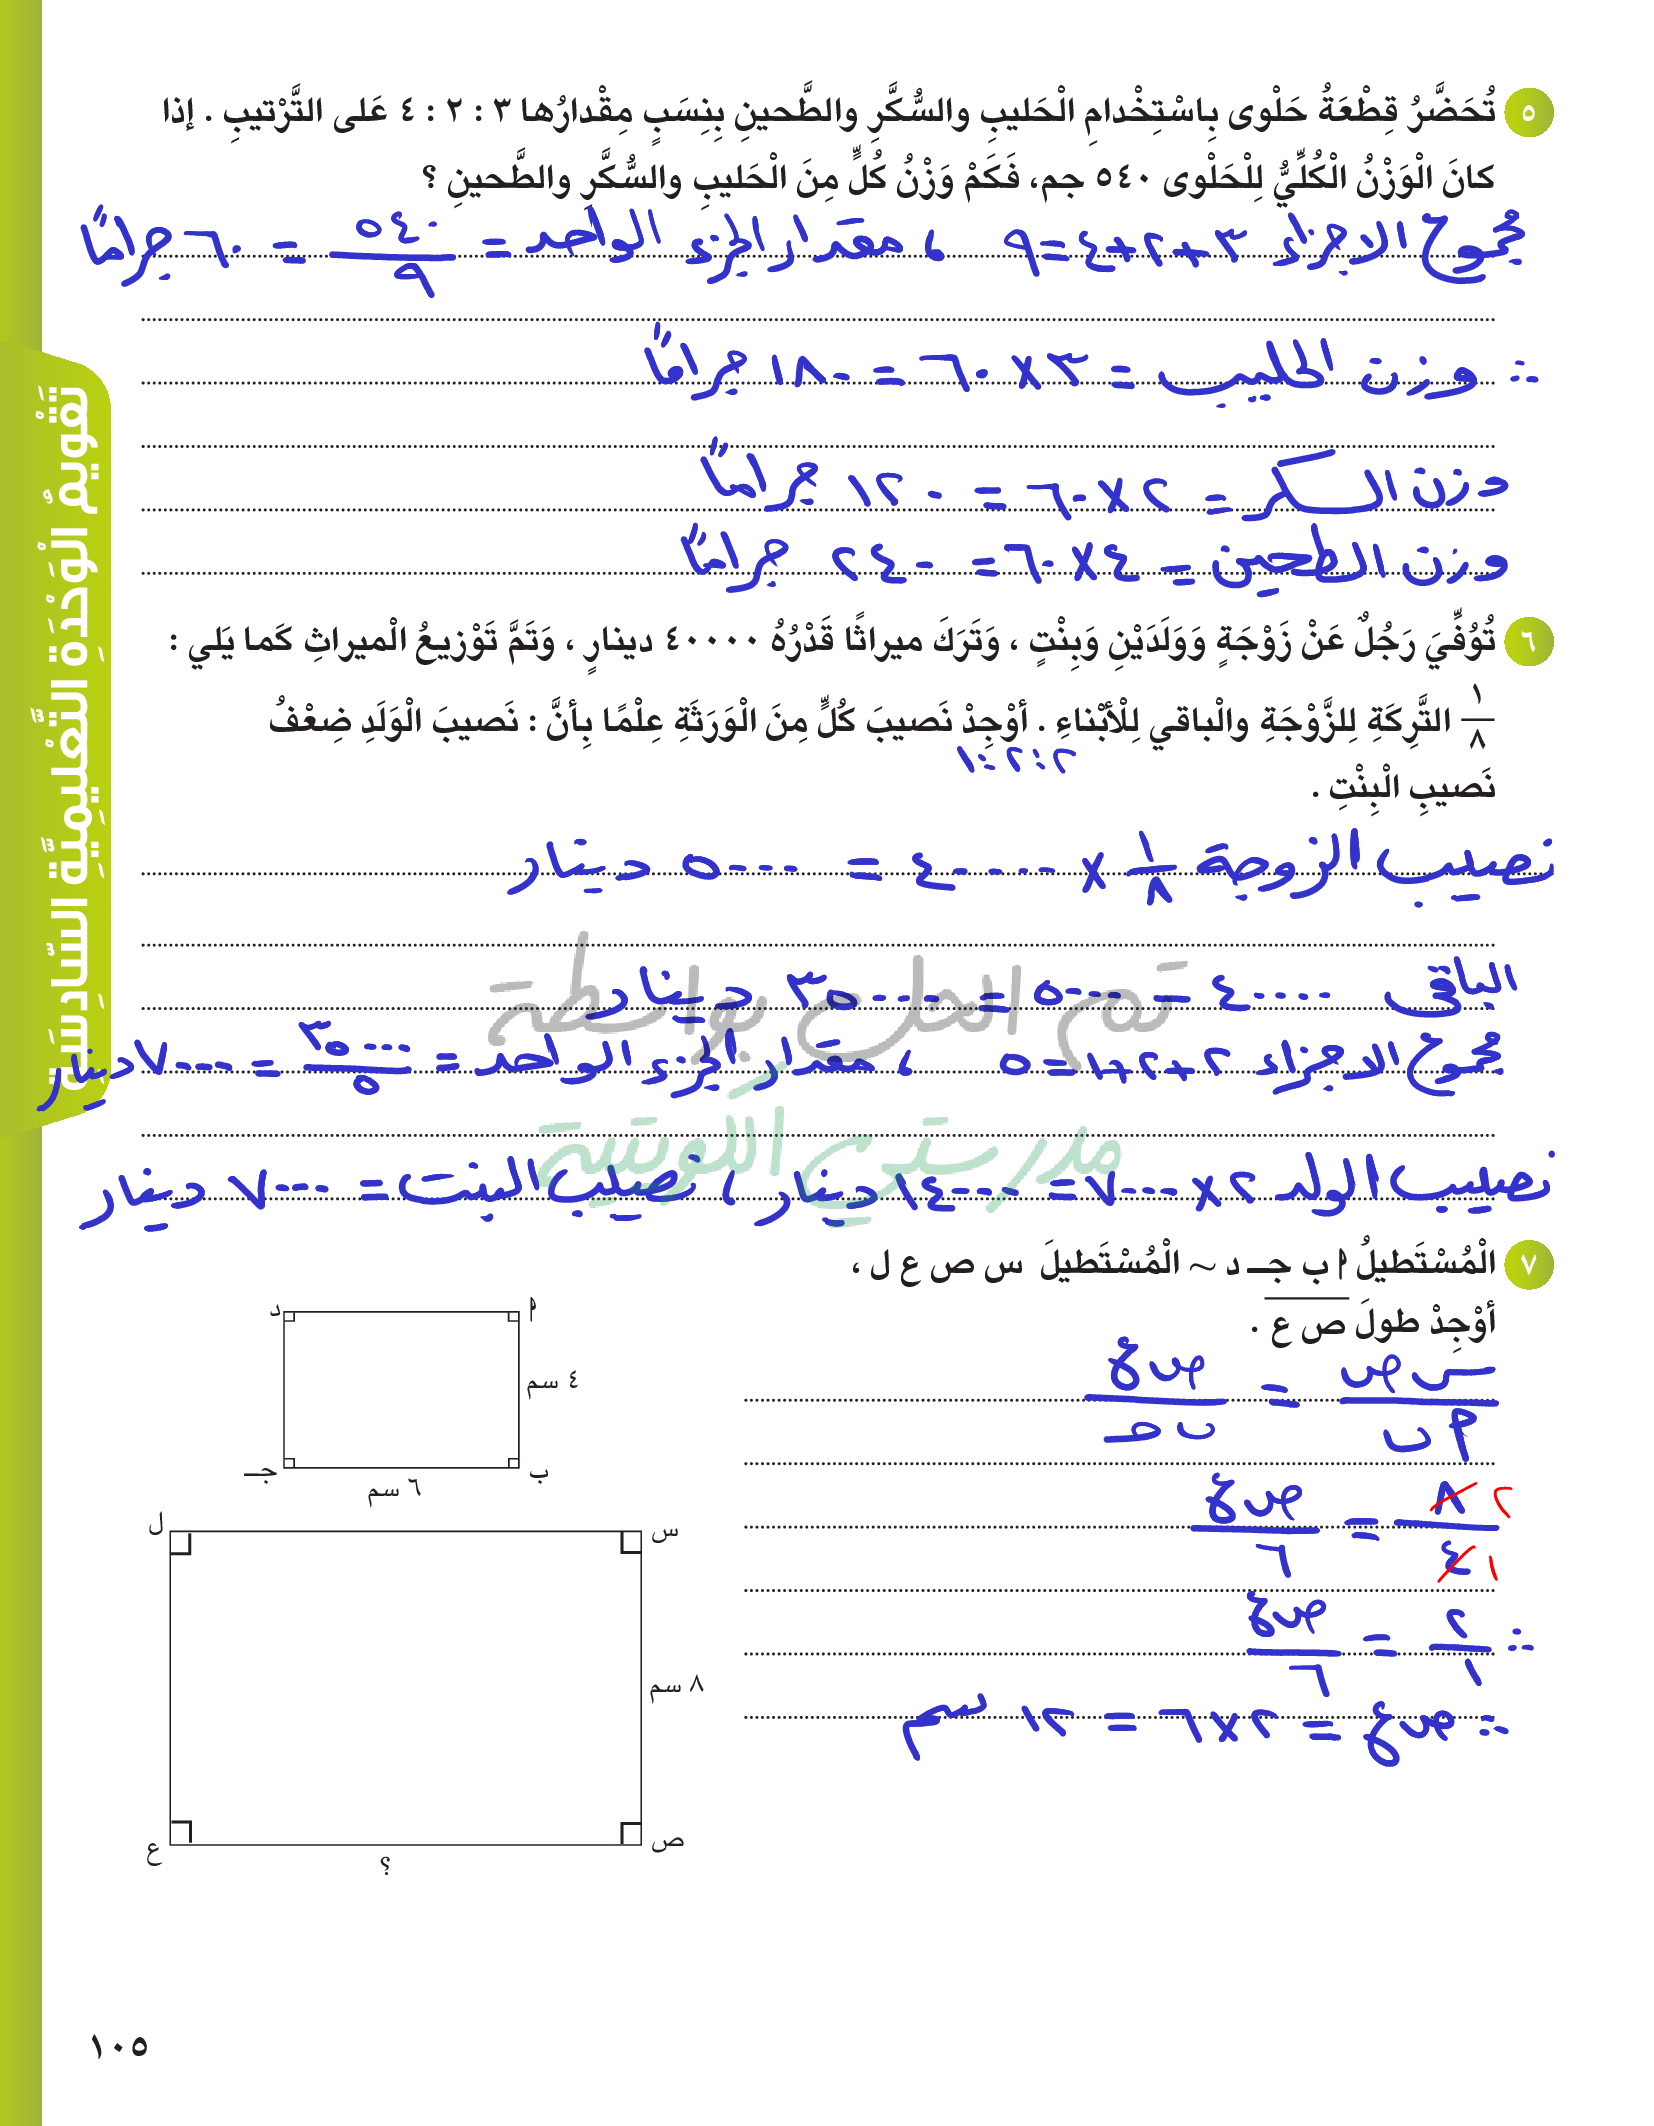 ٥ تُحَضَّرُ قِطْعَةُ حَلْوى بِاسْتِخْدامِ الْحَليبِ والسُّكَّرِ والطَّحينِ بِنِسَبٍ مِقْدارُها ٣ : ٢ : ٤ عَلى التَّرْتيبِ . إذا
كانَ الْوَزْنُ الْكُلِّيُّ لِلْحَلْوى ٥٤٠ جم، فَكَمْ وَزْنُ كُلٍّ مِنَ الْحَليبِ والسُّكَّرِ والطَّحينِ ؟
مجموع الاجزاء ٣+٢+٤=٩ ، مقدار الجزء الواحد = ٥٤٠/٩ = ٦٠ جرامًا
∴ وزن الحليب = ٣×٦٠ = ١٨٠ جرامًا
وزن السكر = ٢×٦٠ = ١٢٠ جرامًا
وزن الطحين = ٤×٦٠ = ٢٤٠ جرامًا
٦ تُوُفِّيَ رَجُلٌ عَنْ زَوْجَةٍ وَوَلَدَيْنِ وَبِنْتٍ ، وَتَرَكَ ميراثًا قَدْرُهُ ٤٠٠٠٠ دينارٍ ، وَتَمَّ تَوْزيعُ الْميراثِ كَما يَلي :
١/٨ التَّرِكَةِ لِلزَّوْجَةِ والْباقي لِلْأَبْناءِ . أوْجِدْ نَصيبَ كُلٍّ مِنَ الْوَرَثَةِ عِلْمًا بِأنَّ : نَصيبَ الْوَلَدِ ضِعْفُ
٢:٢:١
نَصيبِ الْبِنْتِ .
نصيب الزوجة ١/٨ × ٤٠٠٠٠ = ٥٠٠٠ دينار
الباقى ٤٠٠٠٠ = ٥٠٠٠ = ٣٥٠٠٠ دينار
تم الحل بواسطة
مجموع الاجزاء ٢+٢+١=٥ ، مقدار الجزء الواحد = ٣٥٠٠٠/٥ = ٧٠٠٠ دينار
مدرستي الكويتية
نصيب الولد ٢×٧٠٠٠ = ١٤٠٠٠ دينار ، نصيب البنت = ٧٠٠٠ دينار
٧ الْمُسْتَطيلُ أ ب جـ د ~ الْمُسْتَطيلَ س ص ع ل ،
أوْجِدْ طولَ ص ع .
س ص/أ ب = ص ع/ب جـ
٨/٤ = ص ع/٦
٢
١
∴ ٢/١ = ص ع/٦
∴ ص ع = ٢×٦ = ١٢ سم
أ
د
٤ سم
ب
جـ
٦ سم
س
ل
٨ سم
ص
ع
؟
تَقْويمُ الْوَحْدَةِ التَّعْليميَّةِ السّادِسَةِ
١٠٥